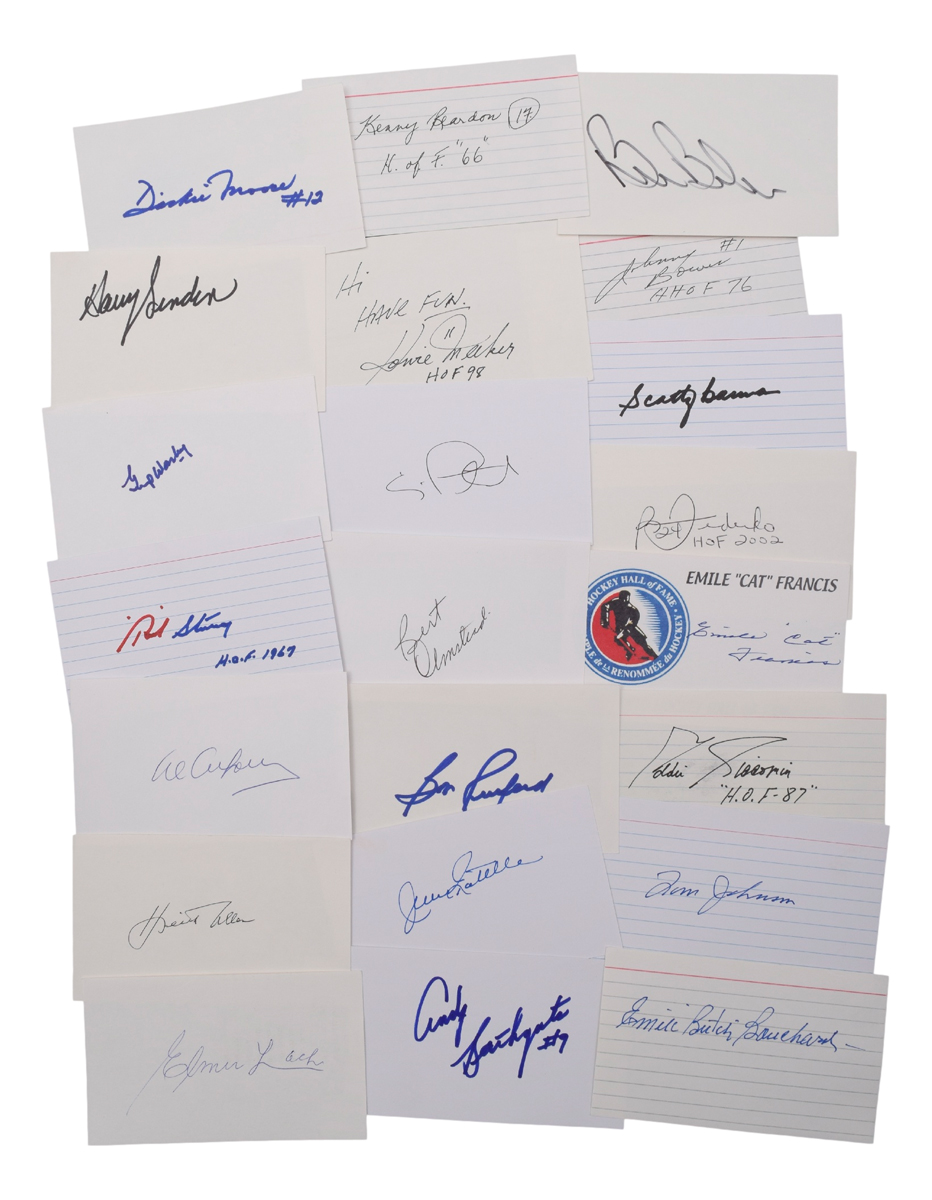 "Dickie" Moore
#12
Kenny Reardon 17
H. of F. "66"
Harry Sinden
Hi
HAVE FUN.
Howie Meeker
HOF 98
Johnny #1
Bower
HHOF 76
Gump Worsley
Scotty Bowman
24 Federko
HOF 2002
"Red" Storey
H.O.F. 1967
Bert
Olmstead
HOCKEY HALL of FAME
TEMPLE de la RENOMMÉE du HOCKEY
EMILE "CAT" FRANCIS
Emile "Cat"
Francis
Al Arbour
Bob Pulford
Eddie Giacomin
"H.O.F-87"
Jean Ratelle
Tom Johnson
Elmer Lach
Andy
Bathgate
#9
Emile "Butch" Bouchard